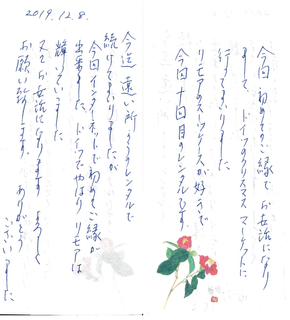 今回 初めてのご縁で お世話になり
まして、ドイツのクリスマス マーケットに
行ってまいりました。
リモアのスーツケースが好きで
今回十回目のレンタルです。
今迄 遠い所からのレンタルで
続けてまいりましたが
今回インターネットで初めてご縁が
出来ました。ドイツでやはり リモアは
輝いていました。
又 お世話になります よろしく
お願い致します。 ありがとう
ございました
2019.12.8.